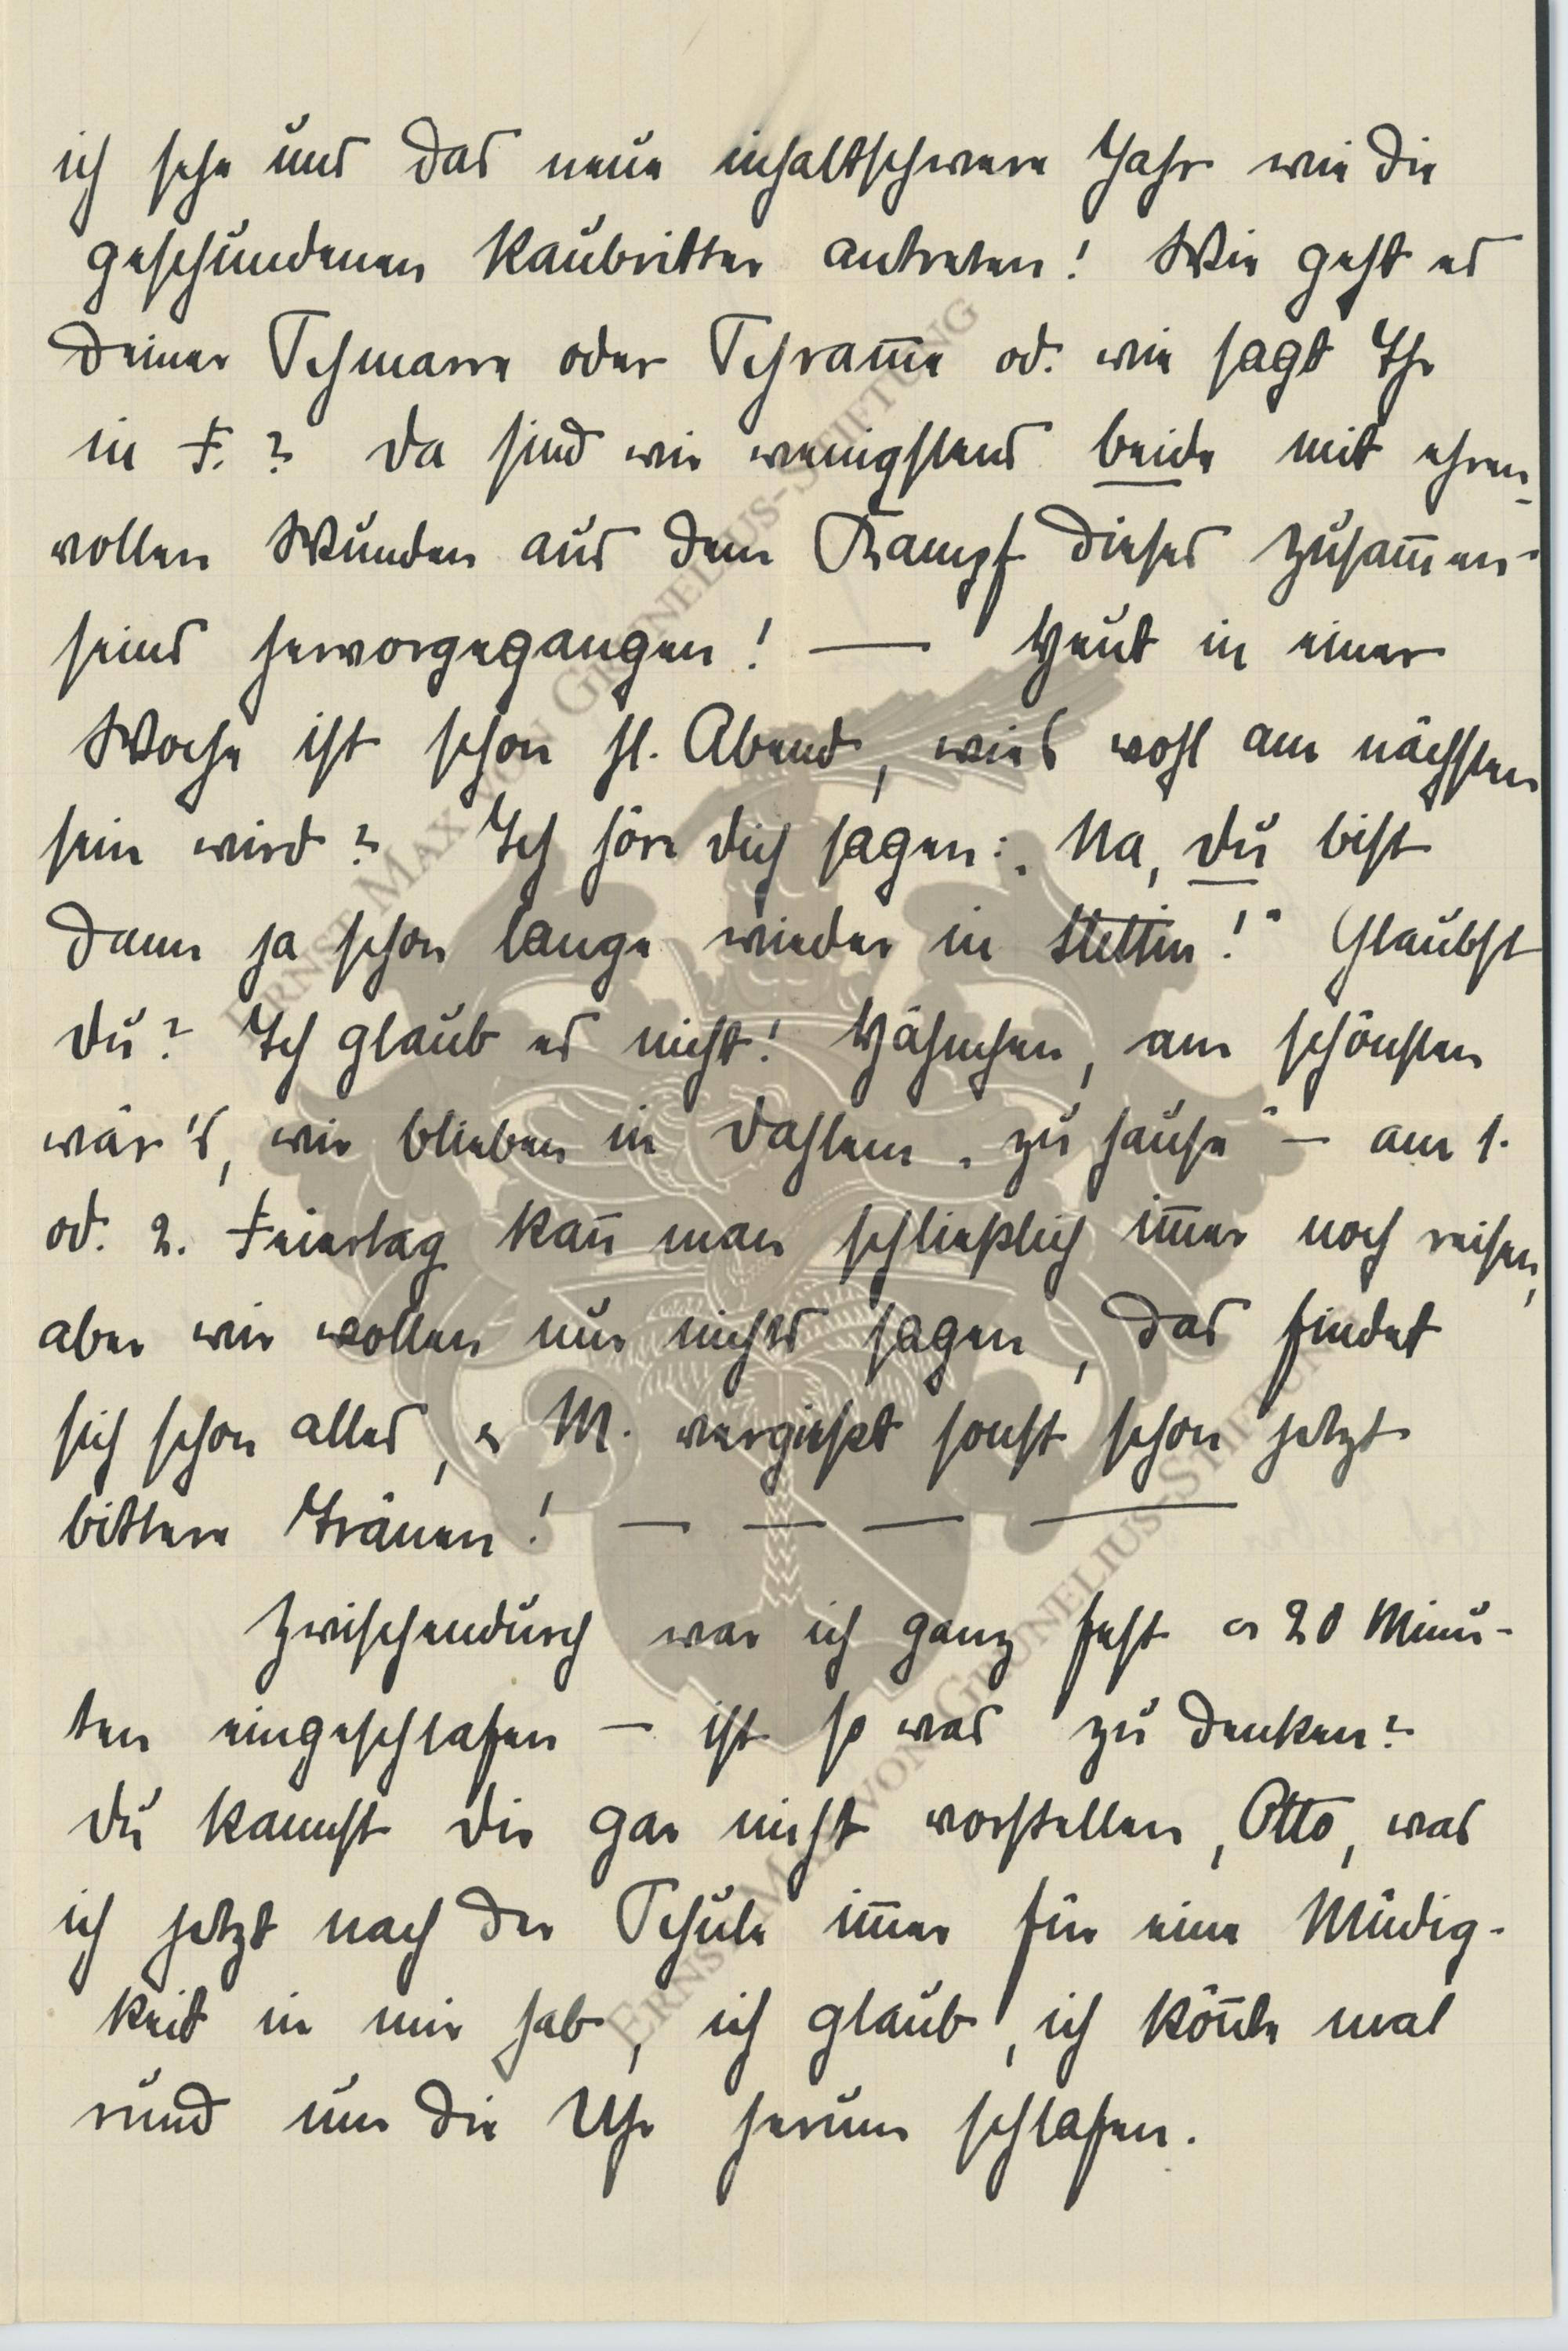 ich sehe uns das neue inhaltschwere Jahr wie die
geschundenen Raubritter antreten! Wie geht es
Deiner Schmarre oder Schram̄e od. wie sagt Ihr
in F.? Da sind wir wenigstens beide mit ehren-
vollen Wunden aus dem Kampf dieses Zusam̄en-
seins hervorgegangen! — Heut in einer
Woche ist schon hl. Abend, wies wohl am nächsten
sein wird? Ich hör Dich sagen: „Na, Du bist
dann ja schon lange wieder in Stettin!" Glaubst
Du? Ich glaub es nicht! Hähnchen, am schönsten
wär's, wir blieben in Dahlem „zu hause" — am 1.
od. 2. Feiertag kan̄ man schließlich im̄er noch reisen,
aber wir wollen nur nichts sagen, das findet
sich schon alles, M. vergießt sonst schon jetzt
bittere Tränen! — — — —
Zwischendurch war ich ganz fest 20 Minu-
ten eingeschlafen — ist so was zu denken?
Du kannst Dir gar nicht vorstellen, Otto, was
ich jetzt nach der Schule im̄er für eine Müdig-
keit in mir hab, ich glaub', ich kön̄te mal
rund um die Uhr herum schlafen.
ERNST MAX VON GRUNELIUS-STIFTUNG
ERNST MAX VON GRUNELIUS-STIFTUNG